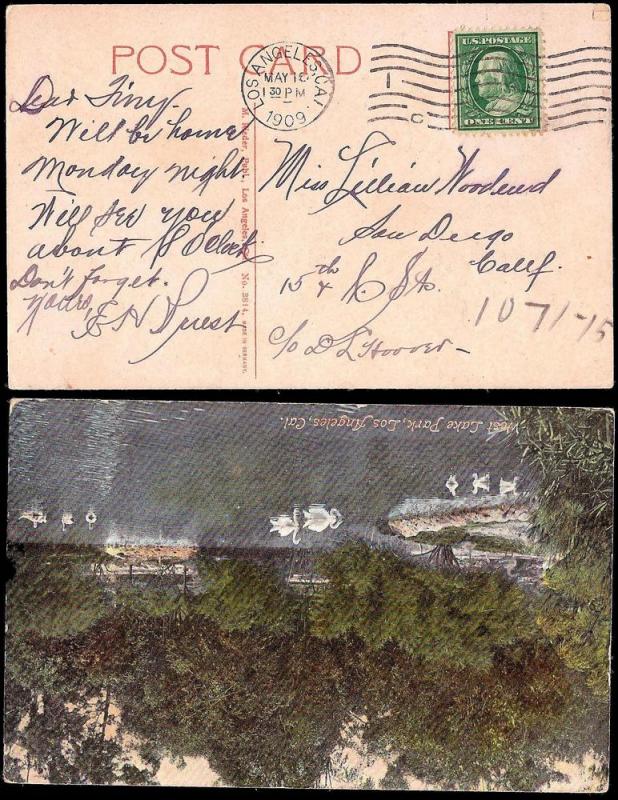 POST CARD
LOS ANGELES, CAL
MAY 1
1 30 PM
1909
U.S. POSTAGE
ONE CENT
Dear Tiny.
Will be home
Monday night
Will see you
about 8 O'Clock
Don't forget.
Yours,
E H Guest
M. Rieder, Publ., Los Angeles, No. 3814, MADE IN GERMANY.
Miss Lillian Woodend
San Diego
Calif.
15th & St.
1071-15
c/o D L Hoover
West Lake Park, Los Angeles, Cal.